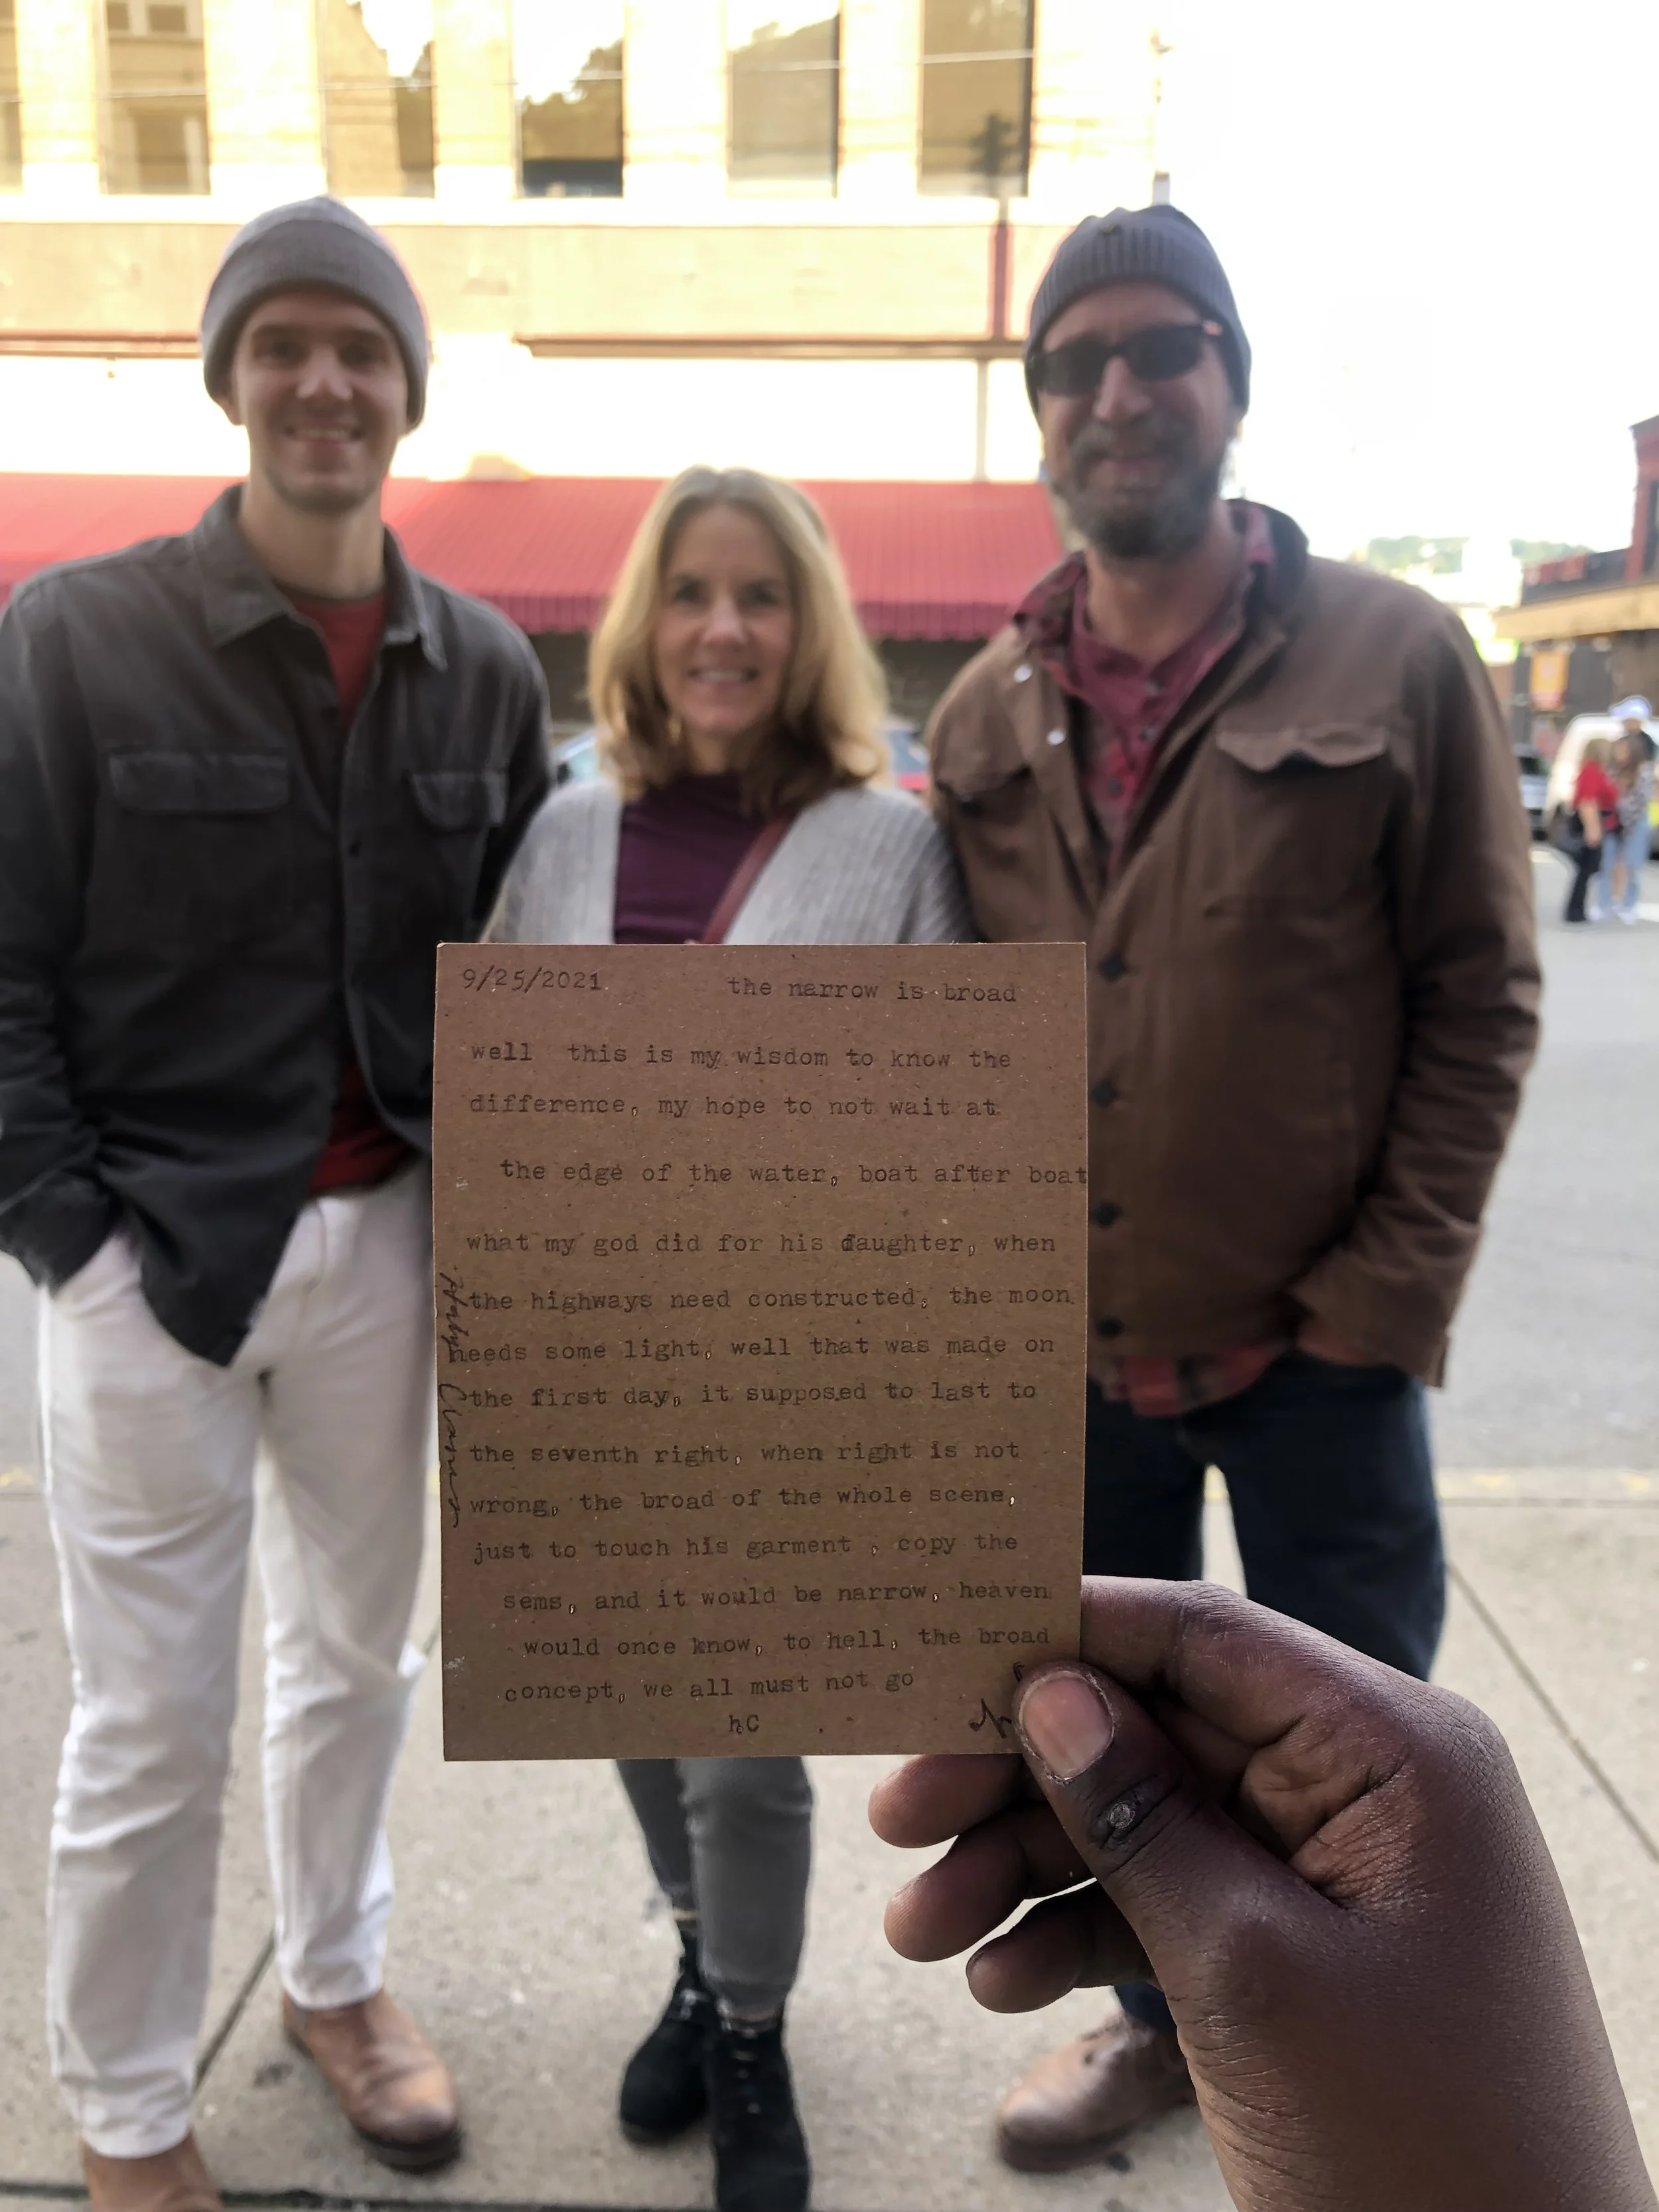 9/25/2021 the narrow is broad
well this is my wisdom to know the
difference, my hope to not wait at
the edge of the water, boat after boat
what my god did for his daughter, when
the highways need constructed, the moon
needs some light, well that was made on
the first day, it supposed to last to
the seventh right, when right is not
wrong, the broad of the whole scene,
just to touch his garment , copy the
sems, and it would be narrow, heaven
would once know, to hell, the broad
concept, we all must not go
hC